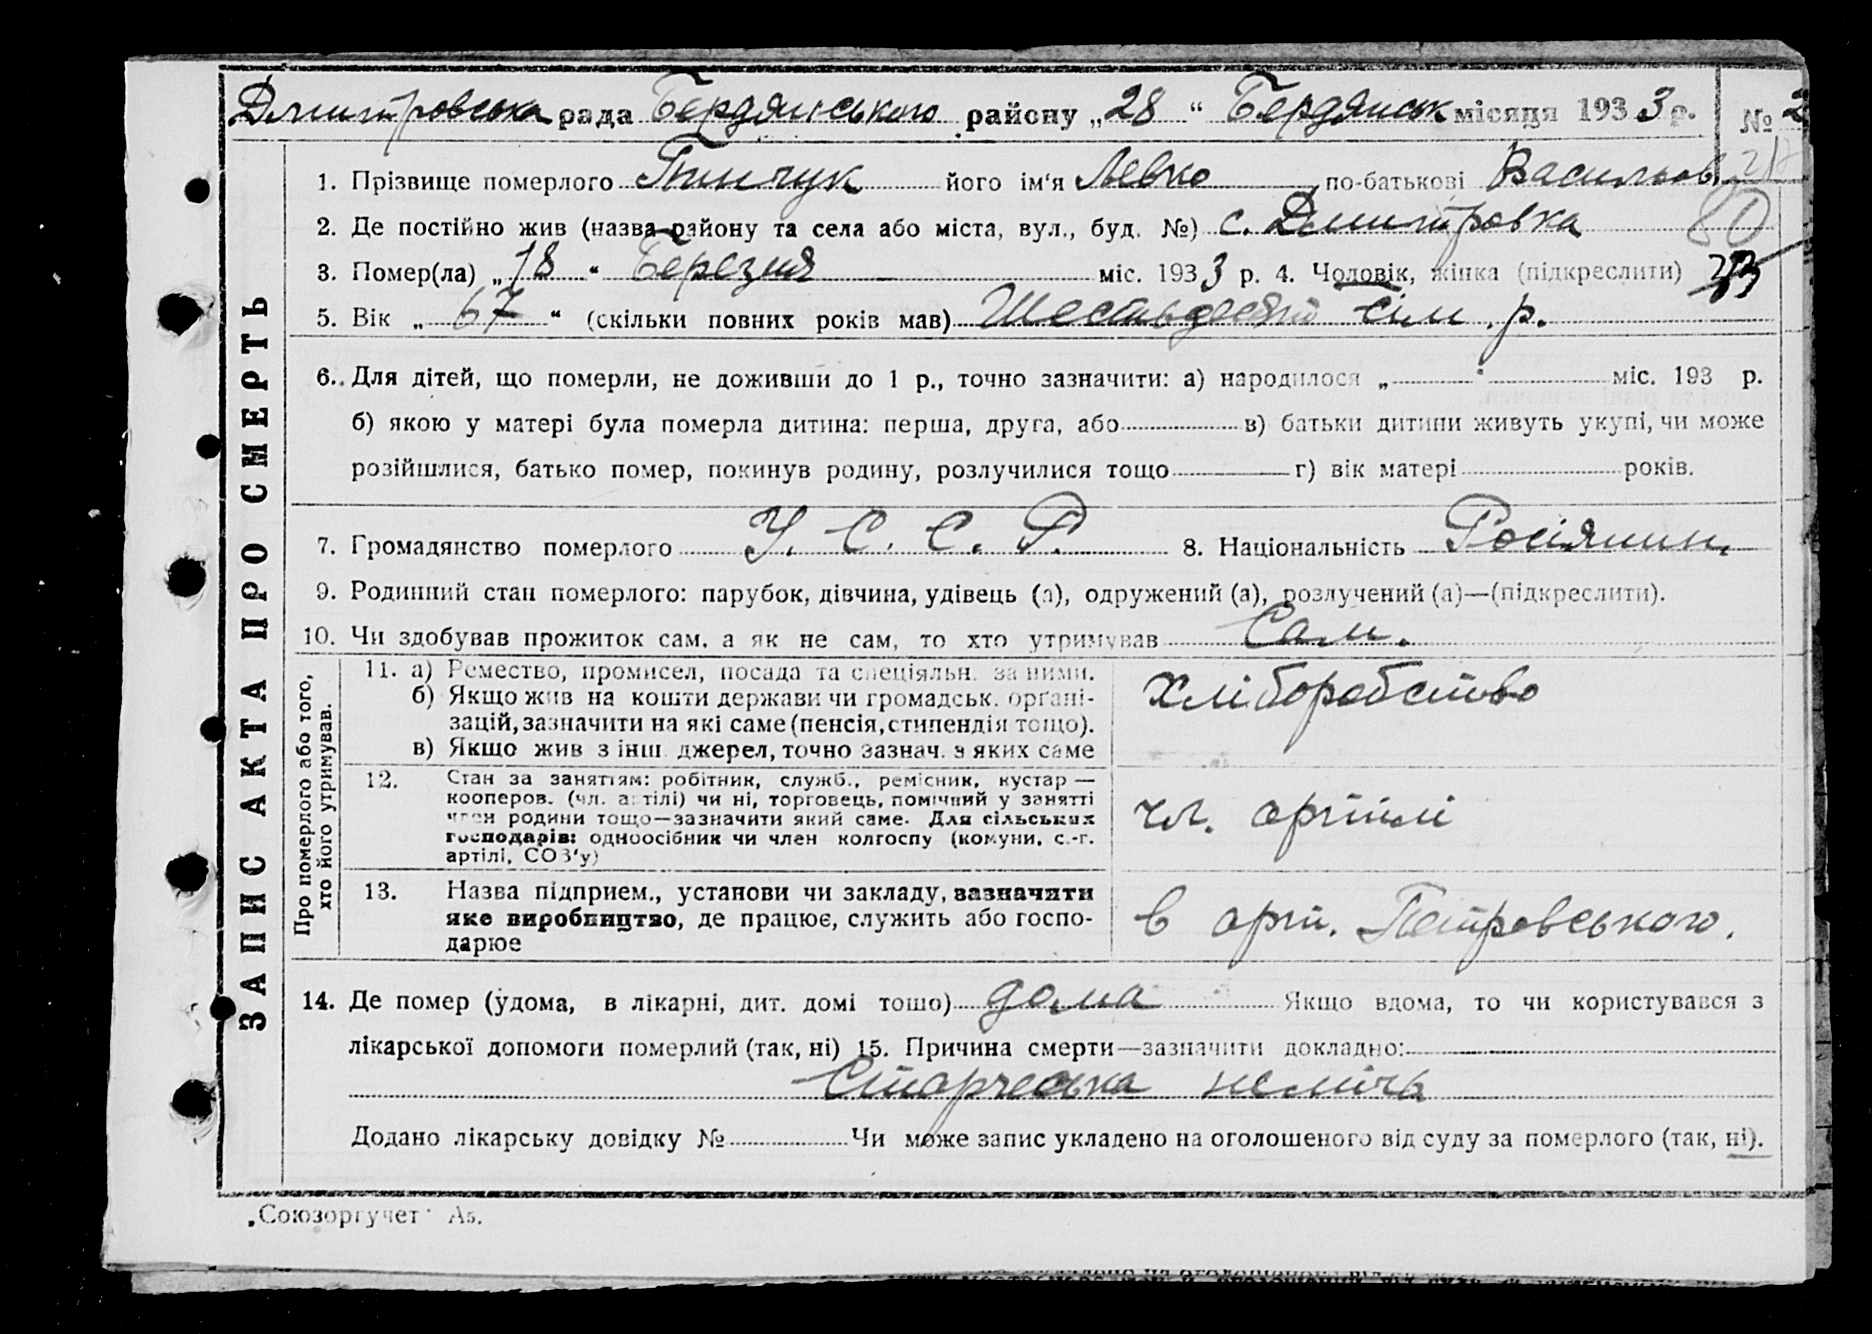 Дмитровська рада Бердянського району „28 “ Бердянськ місяця 1933 р. № 2
1. Прізвище померлого Пинчук його ім'я Левко по-батькові Васильов
2. Де постійно жив (назва району та села або міста, вул., буд. №) с. Дмитровка 80
3. Помер(ла) „18 “ Березня міс. 1933 р. 4. Чоловік, жінка (підкреслити)
5. Вік „ 67 “ (скільки повних років мав) Шестьдесят сім р.
6. Для дітей, що померли, не доживши до 1 р., точно зазначити: а) народилося „ “ міс. 193 р.
б) якою у матері була померла дитина: перша, друга, або в) батьки дитини живуть укупі, чи може
розійшлися, батько помер, покинув родину, розлучилися тощо г) вік матері років.
7. Громадянство померлого У. С. С. Р. 8. Національність Росіянин.
9. Родинний стан померлого: парубок, дівчина, удівець (а), одружений (а), розлучений (а)—(підкреслити).
10. Чи здобував прожиток сам, а як не сам, то хто утримував Сам.
ЗАПИС АКТА ПРО СМЕРТЬ
Про померлого або того,
хто його утримував.
11. а) Ремество, промисел, посада та спеціяльн. за ними.
б) Якщо жив на кошти держави чи громадськ. орґані-
зацій, зазначити на які саме (пенсія, стипендія тощо).
в) Якщо жив з інш. джерел, точно зазнач. з яких саме
хліборобство
12. Стан за заняттям: робітник, служб., ремісник, кустар —
кооперов. (чл. артілі) чи ні, торговець, помічний у занятті
член родини тощо—зазначити який саме. Для сільських
господарів: одноосібник чи член колгоспу (комуни, с.-г.
артілі, СОЗ'у)
чл. артілі
13. Назва підприєм., установи чи закладу, зазначити
яке виробництво, де працює, служить або госпо-
дарює
в арт. Петровського.
14. Де помер (удома, в лікарні, дит. домі тощо) дома Якщо вдома, то чи користувався з
лікарської допомоги померлий (так, ні) 15. Причина смерти—зазначити докладно:
Старческа неміть
Додано лікарську довідку № Чи може запис укладено на оголошеного від суду за померлого (так, ні).
„Союзоргучет“ А5.